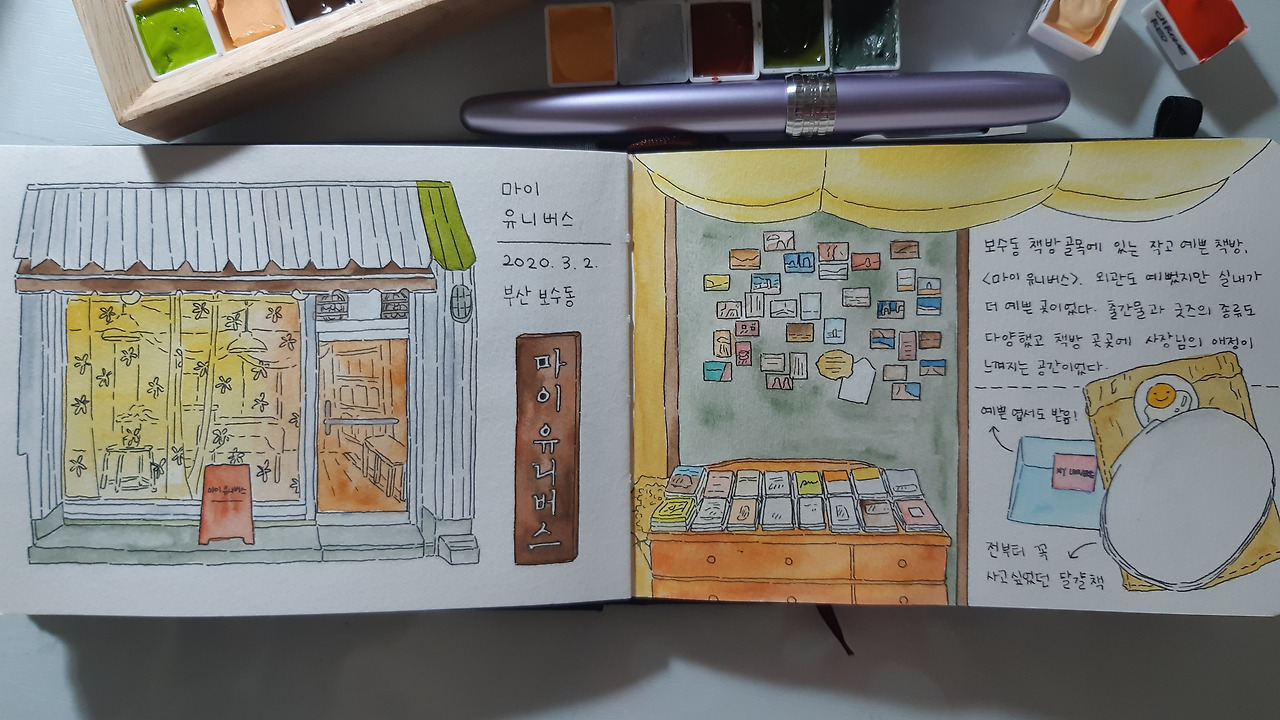 마이
유니버스
2020. 3. 2.
부산 보수동
마이유니버스
마이 유니버스
보수동 책방골목에 있는 작고 예쁜 책방,
<마이 유니버스>. 외관도 예뻤지만 실내가
더 예쁜 곳이었다. 출간물과 굿즈의 종류도
다양했고 책방 곳곳에 사장님의 애정이
느껴지는 공간이었다.
예쁜 엽서도 받음!
MY UNIVERSE
전부터 꼭
사고싶었던 달걀책